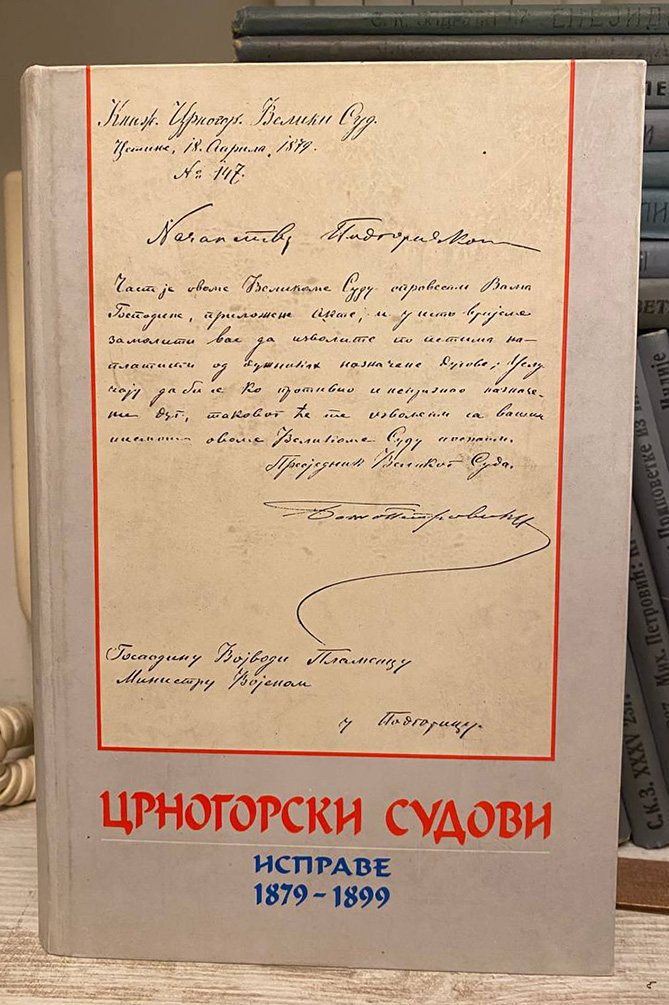 Књаж. Црногор. Велики Суд.
Цетиње, 18. Априла, 1879.
№ 147.
Част је овоме Великоме Суду спровести Вама
Господине, приложене акте, и у исто вријеме
замолити вас да изволите по истима на-
платити од дужниках назначене дугове; у слу
чају да би се ко противио и непризнао назначе-
ни дуг, таковог ће те изволети са вашим
писмом овоме Великоме Суду послати.
Предједник Великог Суда.
Божо Петровић
Господину Војводи Пламенцу
Министру Војеном
у Подгорицу.
ЦРНОГОРСКИ СУДОВИ
ИСПРАВЕ
1879-1899
С.К.З. XXXV 231.
Мих. Петровић: